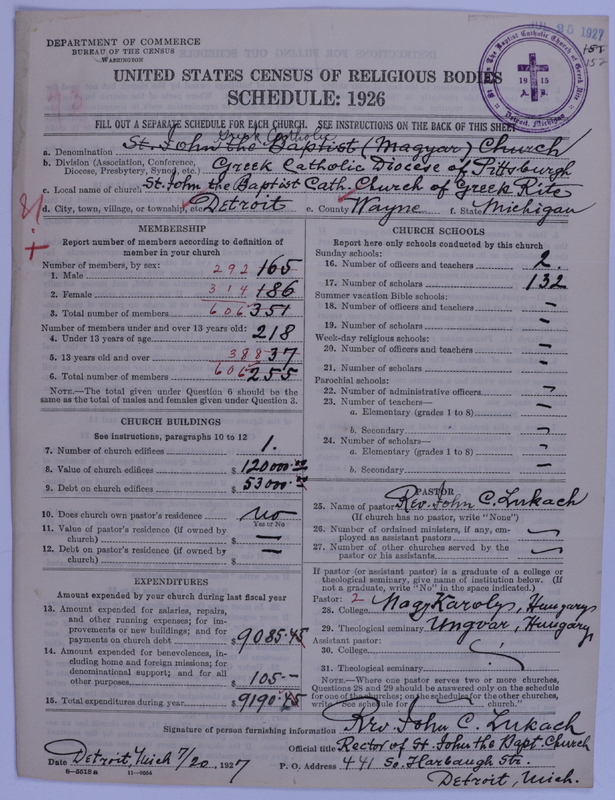 JUL 25 1927
DEPARTMENT OF COMMERCE
BUREAU OF THE CENSUS
WASHINGTON
UNITED STATES CENSUS OF RELIGIOUS BODIES
SCHEDULE: 1926
1915
A. D.
Detroit, Michigan
FILL OUT A SEPARATE SCHEDULE FOR EACH CHURCH. SEE INSTRUCTIONS ON THE BACK OF THIS SHEET
Greek Catholic
a. Denomination St. John the Baptist (Magyar) Church
b. Division (Association, Conference, Diocese, Presbytery, Synod, etc.) Greek Catholic Diocese of Pittsburgh
c. Local name of church St. John the Baptist Cath. Church of Greek Rite
d. City, town, village, or township, etc. Detroit e. County Wayne f. State Michigan
MEMBERSHIP
Report number of members according to definition of
member in your church
Number of members, by sex:
1. Male 292 165
2. Female 314 186
3. Total number of members 606 351
Number of members under and over 13 years old:
4. Under 13 years of age 218
5. 13 years old and over 388 37
6. Total number of members 606 255
NOTE.—The total given under Question 6 should be the
same as the total of males and females given under Question 3.
CHURCH BUILDINGS
See instructions, paragraphs 10 to 12
7. Number of church edifices 1.
8. Value of church edifices $ 120000.00
9. Debt on church edifices $ 53000.
10. Does church own pastor's residence? No
Yes or No
11. Value of pastor's residence (if owned by
church) $ —
12. Debt on pastor's residence (if owned by
church) $ —
EXPENDITURES
Amount expended by your church during last fiscal year
13. Amount expended for salaries, repairs,
and other running expenses; for im-
provements or new buildings; and for
payments on church debt $ 9085.45
14. Amount expended for benevolences, in-
cluding home and foreign missions; for
denominational support; and for all
other purposes $ 105.—
15. Total expenditures during year $ 9190.45
CHURCH SCHOOLS
Report here only schools conducted by this church
Sunday schools:
16. Number of officers and teachers 2.
17. Number of scholars 132
Summer vacation Bible schools:
18. Number of officers and teachers —
19. Number of scholars —
Week-day religious schools:
20. Number of officers and teachers —
21. Number of scholars —
Parochial schools:
22. Number of administrative officers —
23. Number of teachers—
a. Elementary (grades 1 to 8) —
b. Secondary —
24. Number of scholars—
a. Elementary (grades 1 to 8) —
b. Secondary —
PASTOR
25. Name of pastor Rev. John C. Lukach
(If church has no pastor, write "None")
26. Number of ordained ministers, if any, em-
ployed as assistant pastors —
27. Number of other churches served by the
pastor or his assistants —
If pastor (or assistant pastor) is a graduate of a college or
theological seminary, give name of institution below. (If
not a graduate, write "No" in the space indicated.)
Pastor: 2
28. College Nagy Karoly, Hungary
29. Theological seminary Ungvar, Hungary
Assistant pastor:
30. College
31. Theological seminary
NOTE.—Where one pastor serves two or more churches,
Questions 28 and 29 should be answered only on the schedule
for one of the churches; on the schedules for the other churches,
write "See schedule for church."
Signature of person furnishing information Rev. John C. Lukach
Official title Rector of St. John the Bapt. Church
Date Detroit, Mich 7/20, 1927 P. O. Address 441 So. Harbaugh Str.
8—5518a 11—8554 Detroit, Mich.